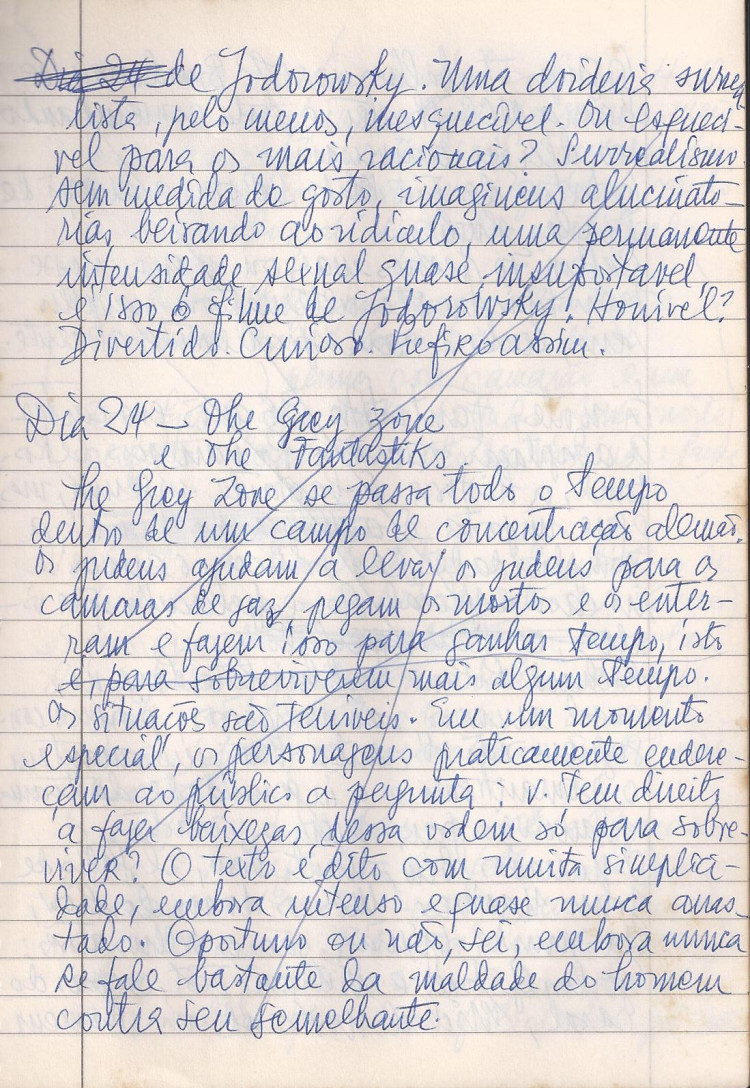 Dia 24 de Jodorowsky. Uma doideria surrea
lista, pelo menos, inesquecível. Ou esqueci-
vel para os mais racionais? Surrealismo
sem medida do gosto, imagineus alucinato-
rias, beirando ao ridiculo, uma permanente
intensidade sexual quase insuportavel,
e isso é o filme de Jodorowsky! Horrivel?
Divertido. Curioso. Prefiro assim.
Dia 24 - The Grey Zone
e The Fantastiks
The Grey Zone se passa todo o tempo
dentro de um campo de concentração alemão.
Os judeus ajudam a levar os judeus para as
camaras de gaz, pegam os mortos e os enter-
ram e fazem isso para ganhar tempo, isto
e, para sobreviverem mais algum tempo.
As situações são terriveis. Em um momento
especial, os personagens praticamente endere-
çam ao público a pergunta: v. tem direito
a fazer baixezas dessa ordem só para sobre-
viver? O texto é dito com muita simplici-
dade, embora intenso e quase nunca arras-
tado. Oportuno ou não, sei, embora nunca
se fale bastante da maldade do homem
contra seu semelhante.